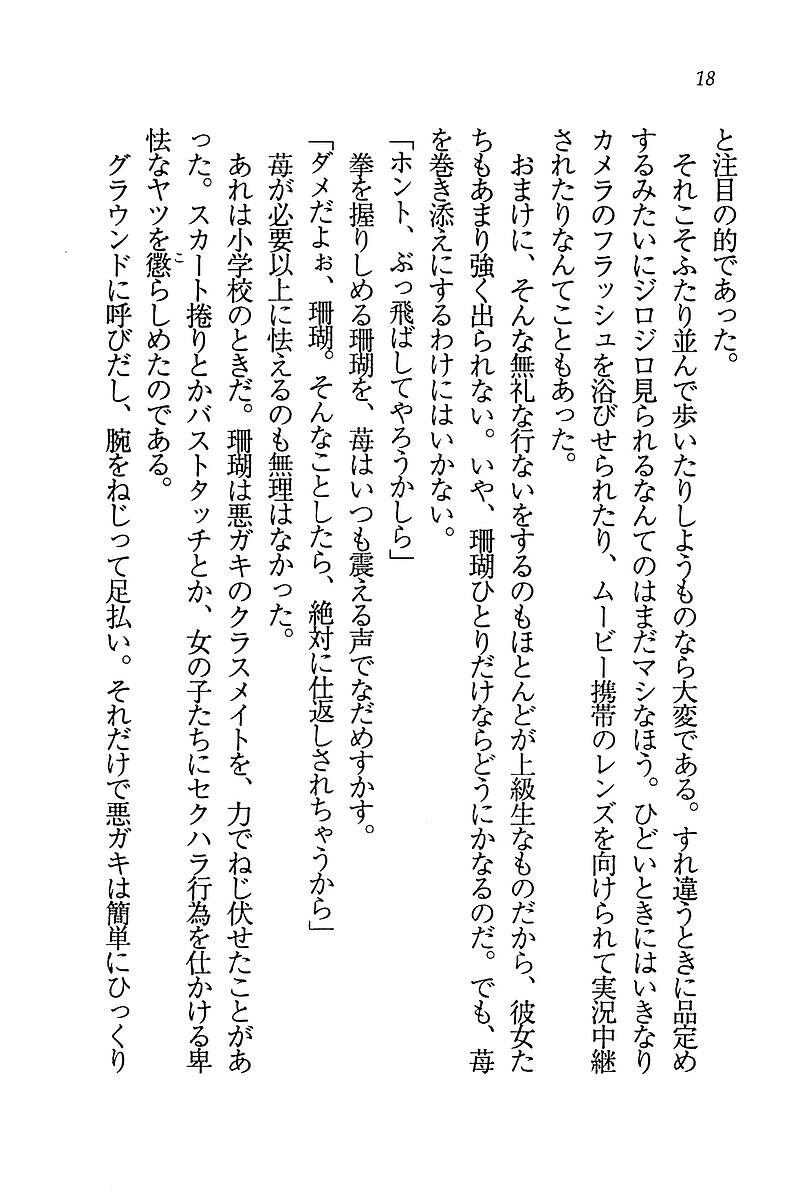 18
と注目の的であった。
それこそふたり並んで歩いたりしようものなら大変である。すれ違うときに品定め
するみたいにジロジロ見られるなんてのはまだマシなほう。ひどいときにはいきなり
カメラのフラッシュを浴びせられたり、ムービー携帯のレンズを向けられて実況中継
されたりなんてこともあった。
おまけに、そんな無礼な行ないをするのもほとんどが上級生なものだから、彼女た
ちもあまり強く出られない。いや、珊瑚ひとりだけならどうにかなるのだ。でも、苺
を巻き添えにするわけにはいかない。
「ホント、ぶっ飛ばしてやろうかしら」
拳を握りしめる珊瑚を、苺はいつも震える声でなだめすかす。
「ダメだよぉ、珊瑚。そんなことしたら、絶対に仕返しされちゃうから」
苺が必要以上に怯えるのも無理はなかった。
あれは小学校のときだ。珊瑚は悪ガキのクラスメイトを、力でねじ伏せたことがあ
った。スカート捲りとかバストタッチとか、女の子たちにセクハラ行為を仕かける卑
怯なヤツを懲らしめたのである。
グラウンドに呼びだし、腕をねじって足払い。それだけで悪ガキは簡単にひっくり